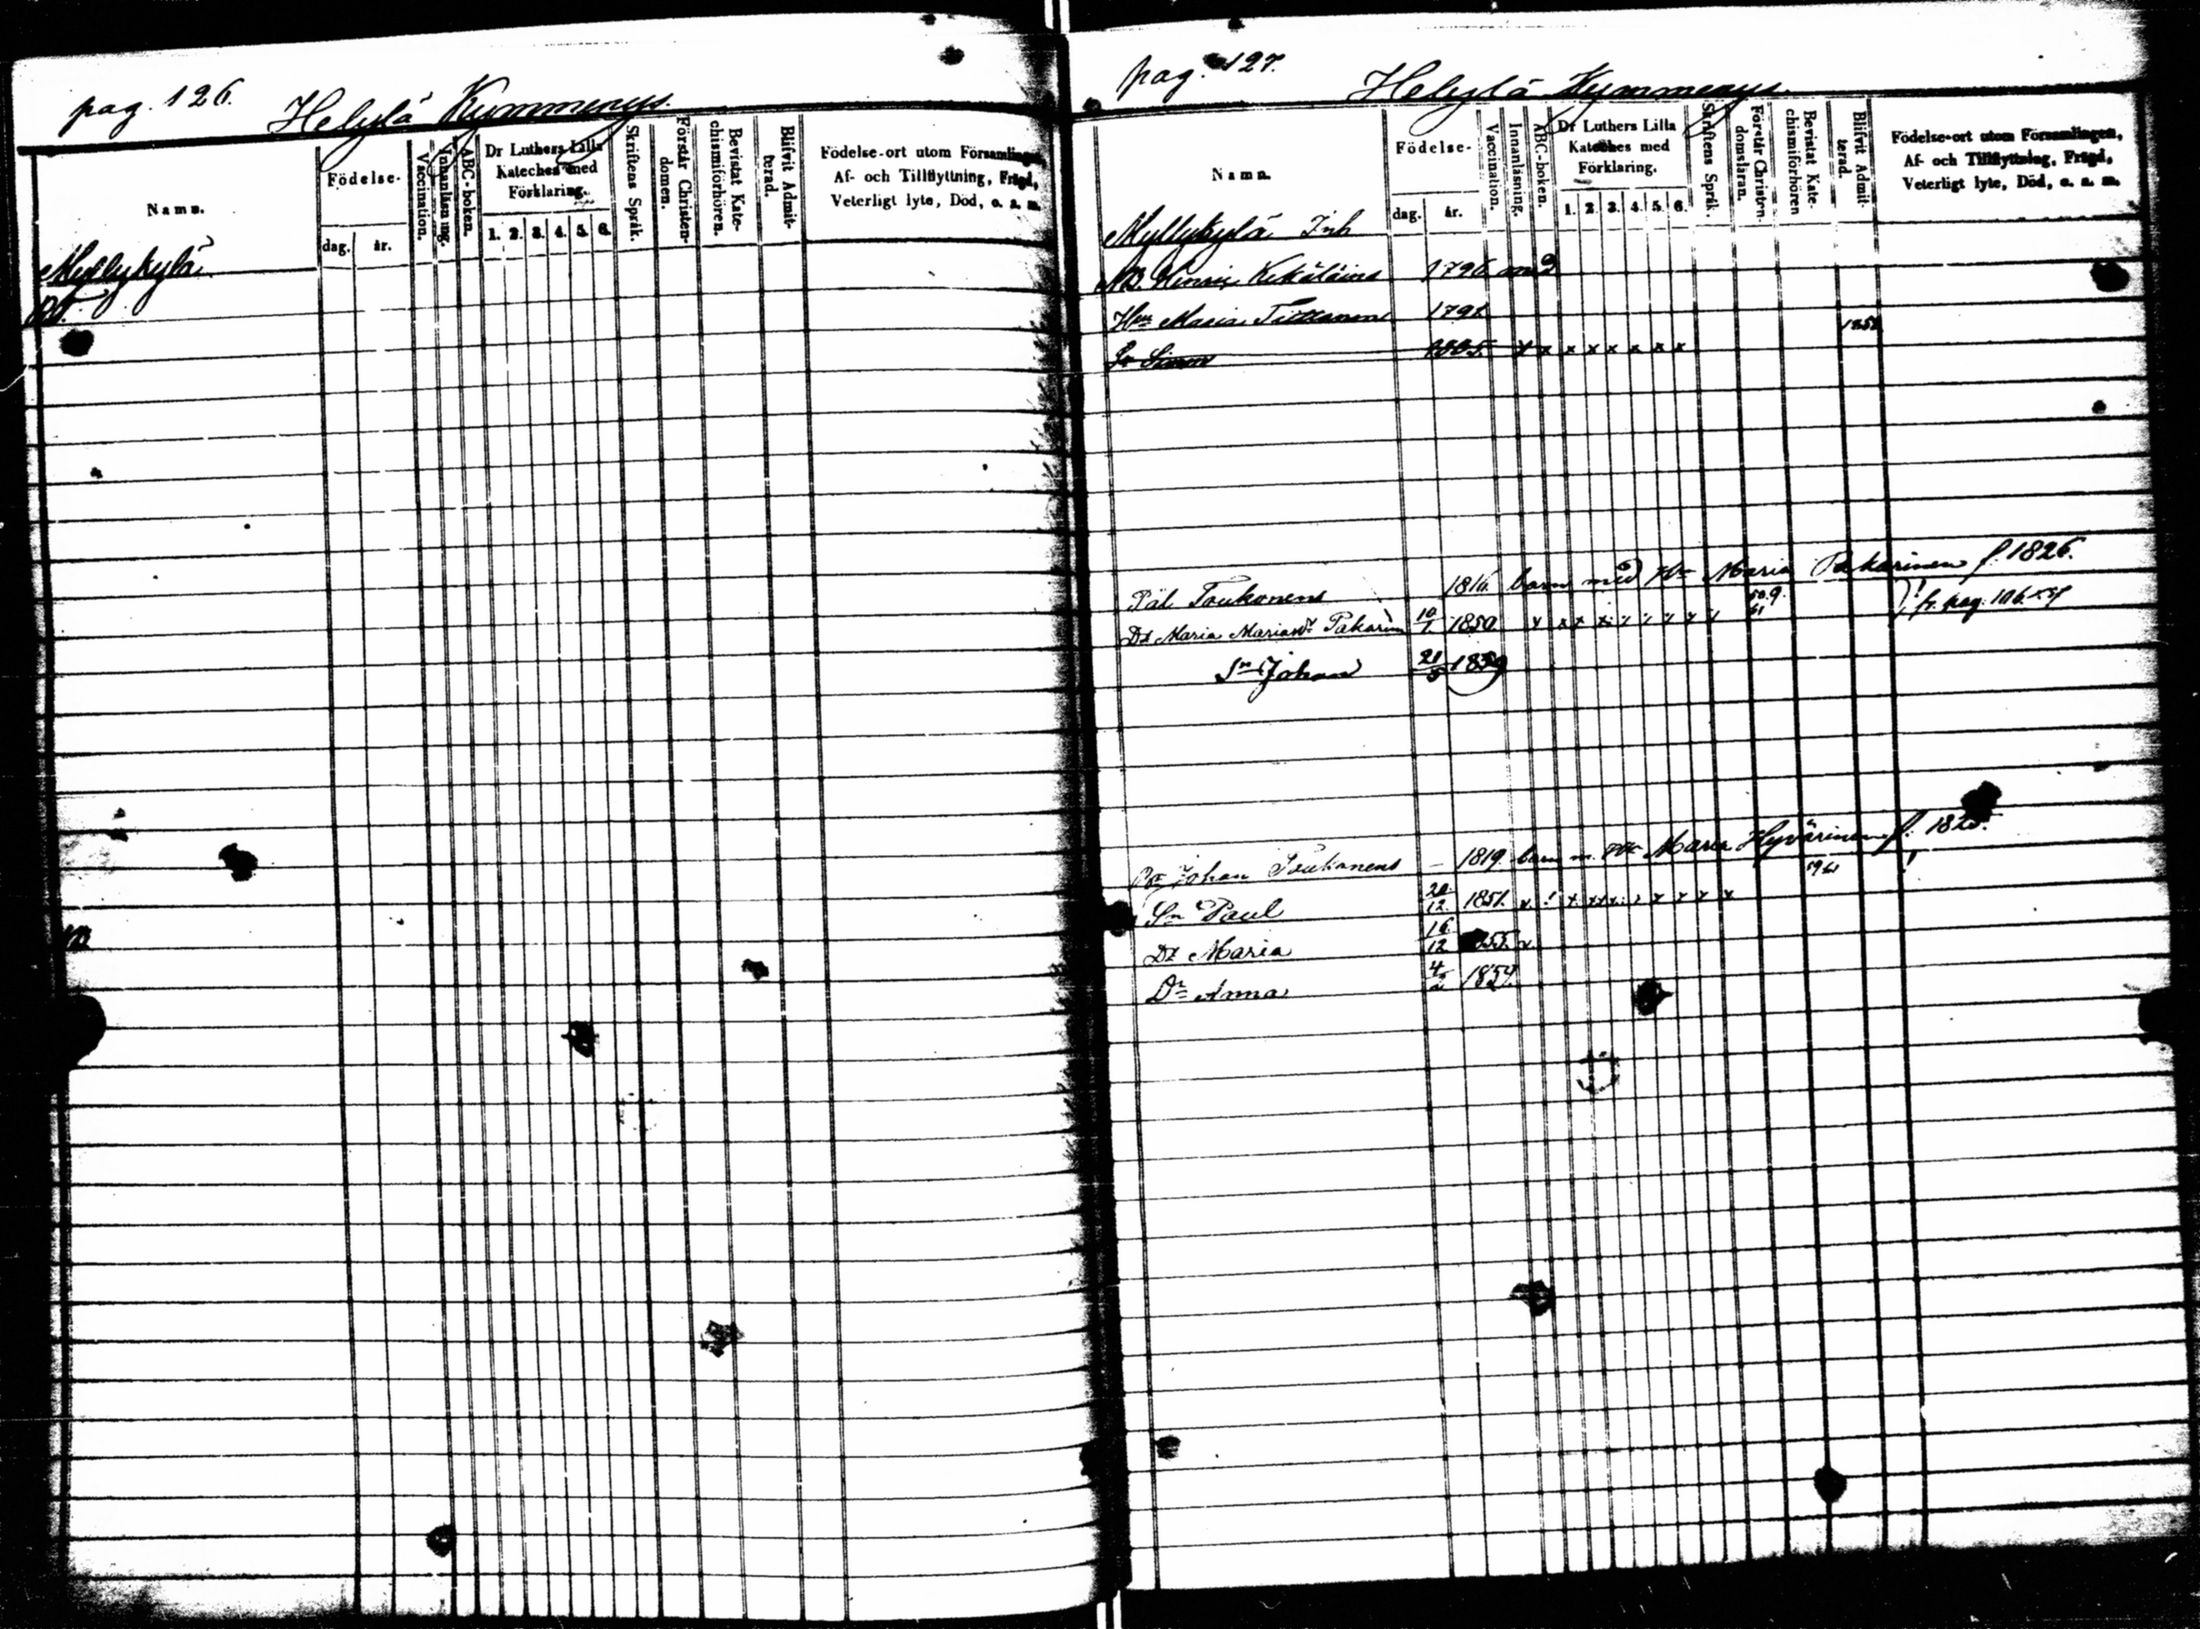 pag. 126.
Helylä Kymmenys.
Namn.
Födelse-
dag. år.
Vaccination.
Innanläsning.
ABC-boken.
Dr Luthers Lilla Kateches med Förklaring.
1. 2. 3. 4. 5. 6.
Skriftens Språk.
Förstår Christendomen.
Bevistat Katechismiförhören.
Blifvit Admitterad.
Födelse-ort utom Församlingen,
Af- och Tillflyttning, Frägd,
Veterligt lyte, Död, o. s. m.
Myllykylä
pag. 127.
Helylä Kymmenys
Namn.
Födelse-
dag. år.
Vaccination.
Innanläsning.
ABC-boken.
Dr Luthers Lilla Kateches med Förklaring.
1. 2. 3. 4. 5. 6.
Skriftens Språk.
Förstår Christendomsläran.
Bevistat Katechismiförhören
Blifvit Admitterad.
Födelse-ort utom Församlingen,
Af- och Tillflyttning, Frägd,
Veterligt lyte, Död, o. s. m.
Myllykylä Inh
Henric 1796
Hu Maria 179
Sn Simon x x x x x x x x
Pål Toukonens 1816. barn med Hu Maria Pakarinen f. 1826.
Dr Maria Pakarin 10 1850 fr. pag. 106
Sn Johan 21 1859
Johan Toukonens – 1819. barn m. Maria Hyvärinen f.
Sn Paul 20/12. 1851.
Dr Maria 16/12 55. x
Dr Anna 4